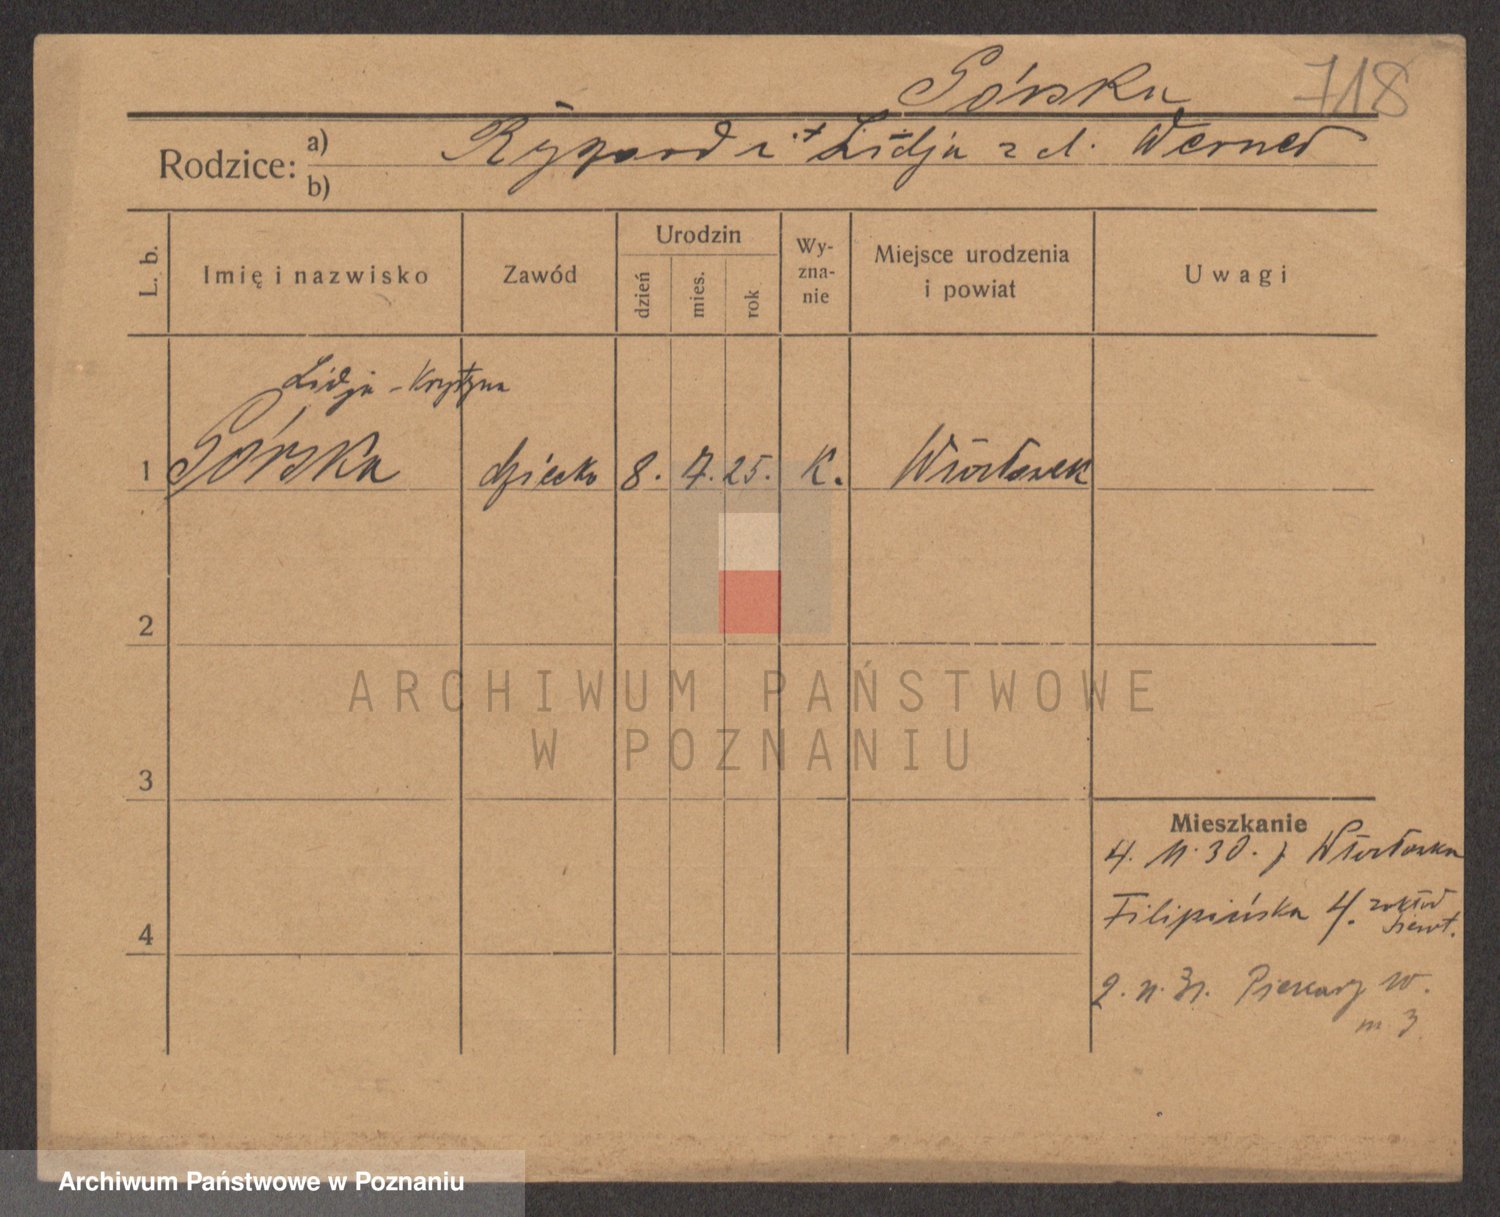 Górska 718
Rodzice: a) Ryszard i Lidja z d. Werner
b)
L. b. Imię i nazwisko Zawód Urodzin dzień mies. rok Wy-zna-nie Miejsce urodzenia i powiat Uwagi
Lidja - Krystyna
1 Górska dziecko 8. 7. 25. K. Włocławek
2
3
4
Mieszkanie
4. 11. 30. z Włocławka
Filipińska 4. zakład
2. 11. 31. Piekary
m 3
ARCHIWUM PAŃSTWOWE
W POZNANIU
Archiwum Państwowe w Poznaniu